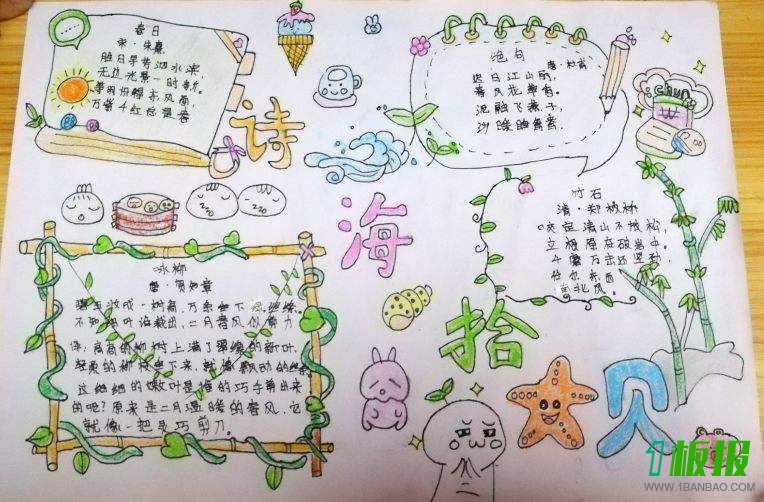 春日
宋·朱熹
胜日寻芳泗水滨
无边光景一时新。
等闲识得东风面,
万紫千红总是春
诗
绝句
唐·杜甫
迟日江山丽,
春风花草香。
泥融飞燕子,
沙暖睡鸳鸯。
chun
海
竹石
清·郑板桥
咬定青山不放松,
立根原在破岩中。
千磨万击还坚劲,
任尔东西
南北风。
zzo
zzo
咏柳
唐·贺知章
碧玉妆成一树高,万条垂下绿丝绦。
不知细叶谁裁出,二月春风似剪刀
译:高高的柳树上满了翠绿的新叶,
轻柔的柳枝垂下来,就像飘动的丝
这细细的嫩叶是谁的巧手剪出来
的呢?原来是二月温暖的春风,它
就像一把灵巧剪刀。
拾
贝
1板报
WWW.1BANBAO.COM